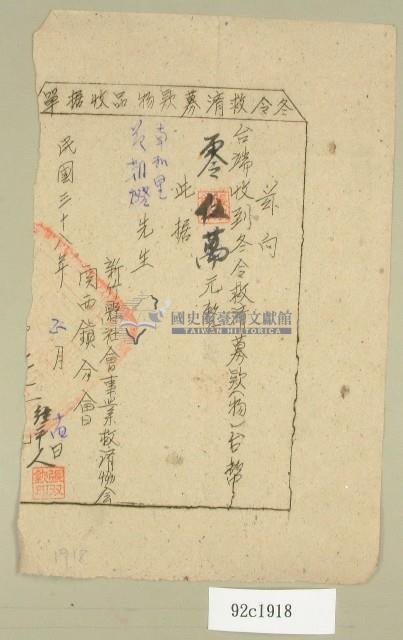 冬令救濟募款物品收据單
茲向
台端收到冬令救濟募款(物)台幣
零伍萬元整
此据
南和里
黃朝燈先生
新竹縣社會事業救濟協会
関西鎮分會
民國三十年 正月 日
経手人
國史館臺灣文獻館
TAIWAN HISTORICA
1918
92c1918